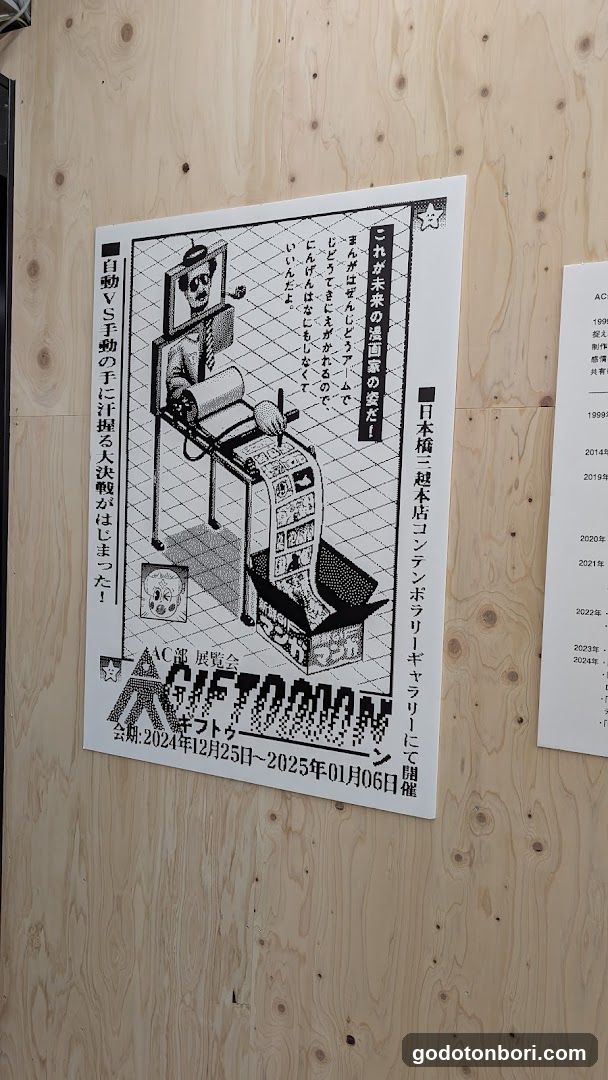 これが未来の漫画家の姿だ！
まんがはぜんじどうアームで
じどうてきにえがかれるので、
にんげんはなにもしなくて
いいんだよ。
■自動VS手動の手に汗握る大決戦がはじまった！
■日本橋三越本店コンテンポラリーギャラリーにて開催
マンガ
AC部 展覧会
GIFTOOOWN
ギフトゥーン
会期:2024年12月25日~2025年01月06日
AC
1999
捉え
制作
感情
共有
1999年
2014年
2019年
2020年
2021年
2022年
2023年
2024年
godotonbori.com